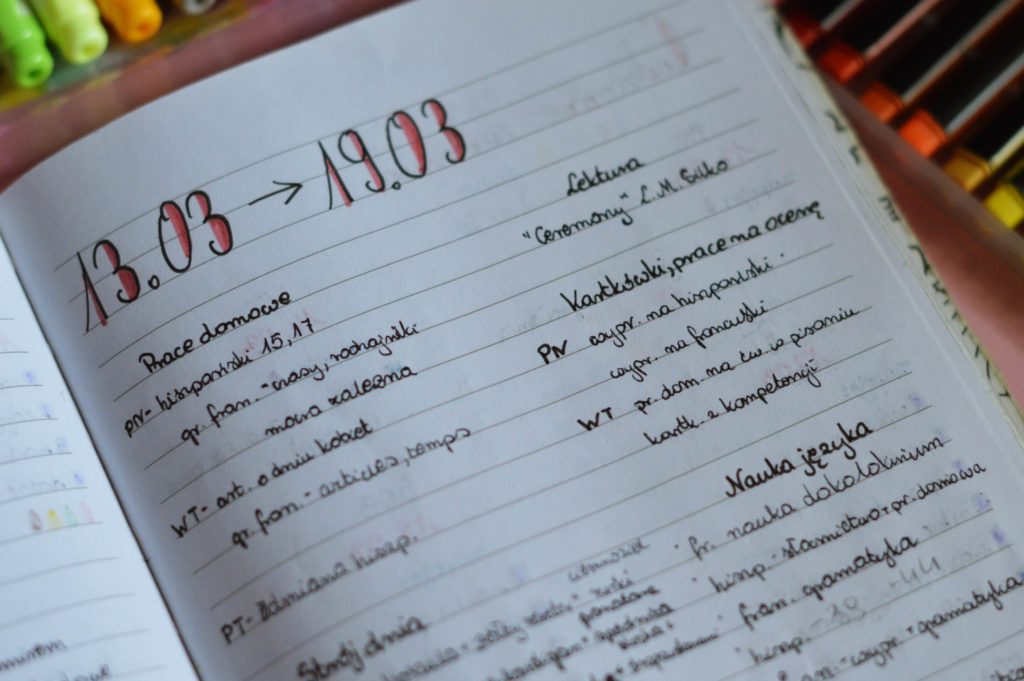 13.03 → 19.03
Prace domowe
PN- hiszpański 15, 17
gr. fran. - czasy, rodzajniki
mowa zależna
WT- art. o dniu kobiet
gr. fran. - articles, temps
PT- Odmiana hiszp.
Strój dnia
Lektura
"Ceremony" L. M. Silko
Kartkówki, prace na ocenę
PN wypr. na hiszpański
wypr. na francuski
WT pr. dom. na ćw. w pisaniu
kartk. z kompetencji
Nauka języka
fr. nauka do kolokwium
hiszp. słownictwo + pr. domowa
fran. - gramatyka
hiszp. - 39 - 44
fran - wypr. + gramatyka